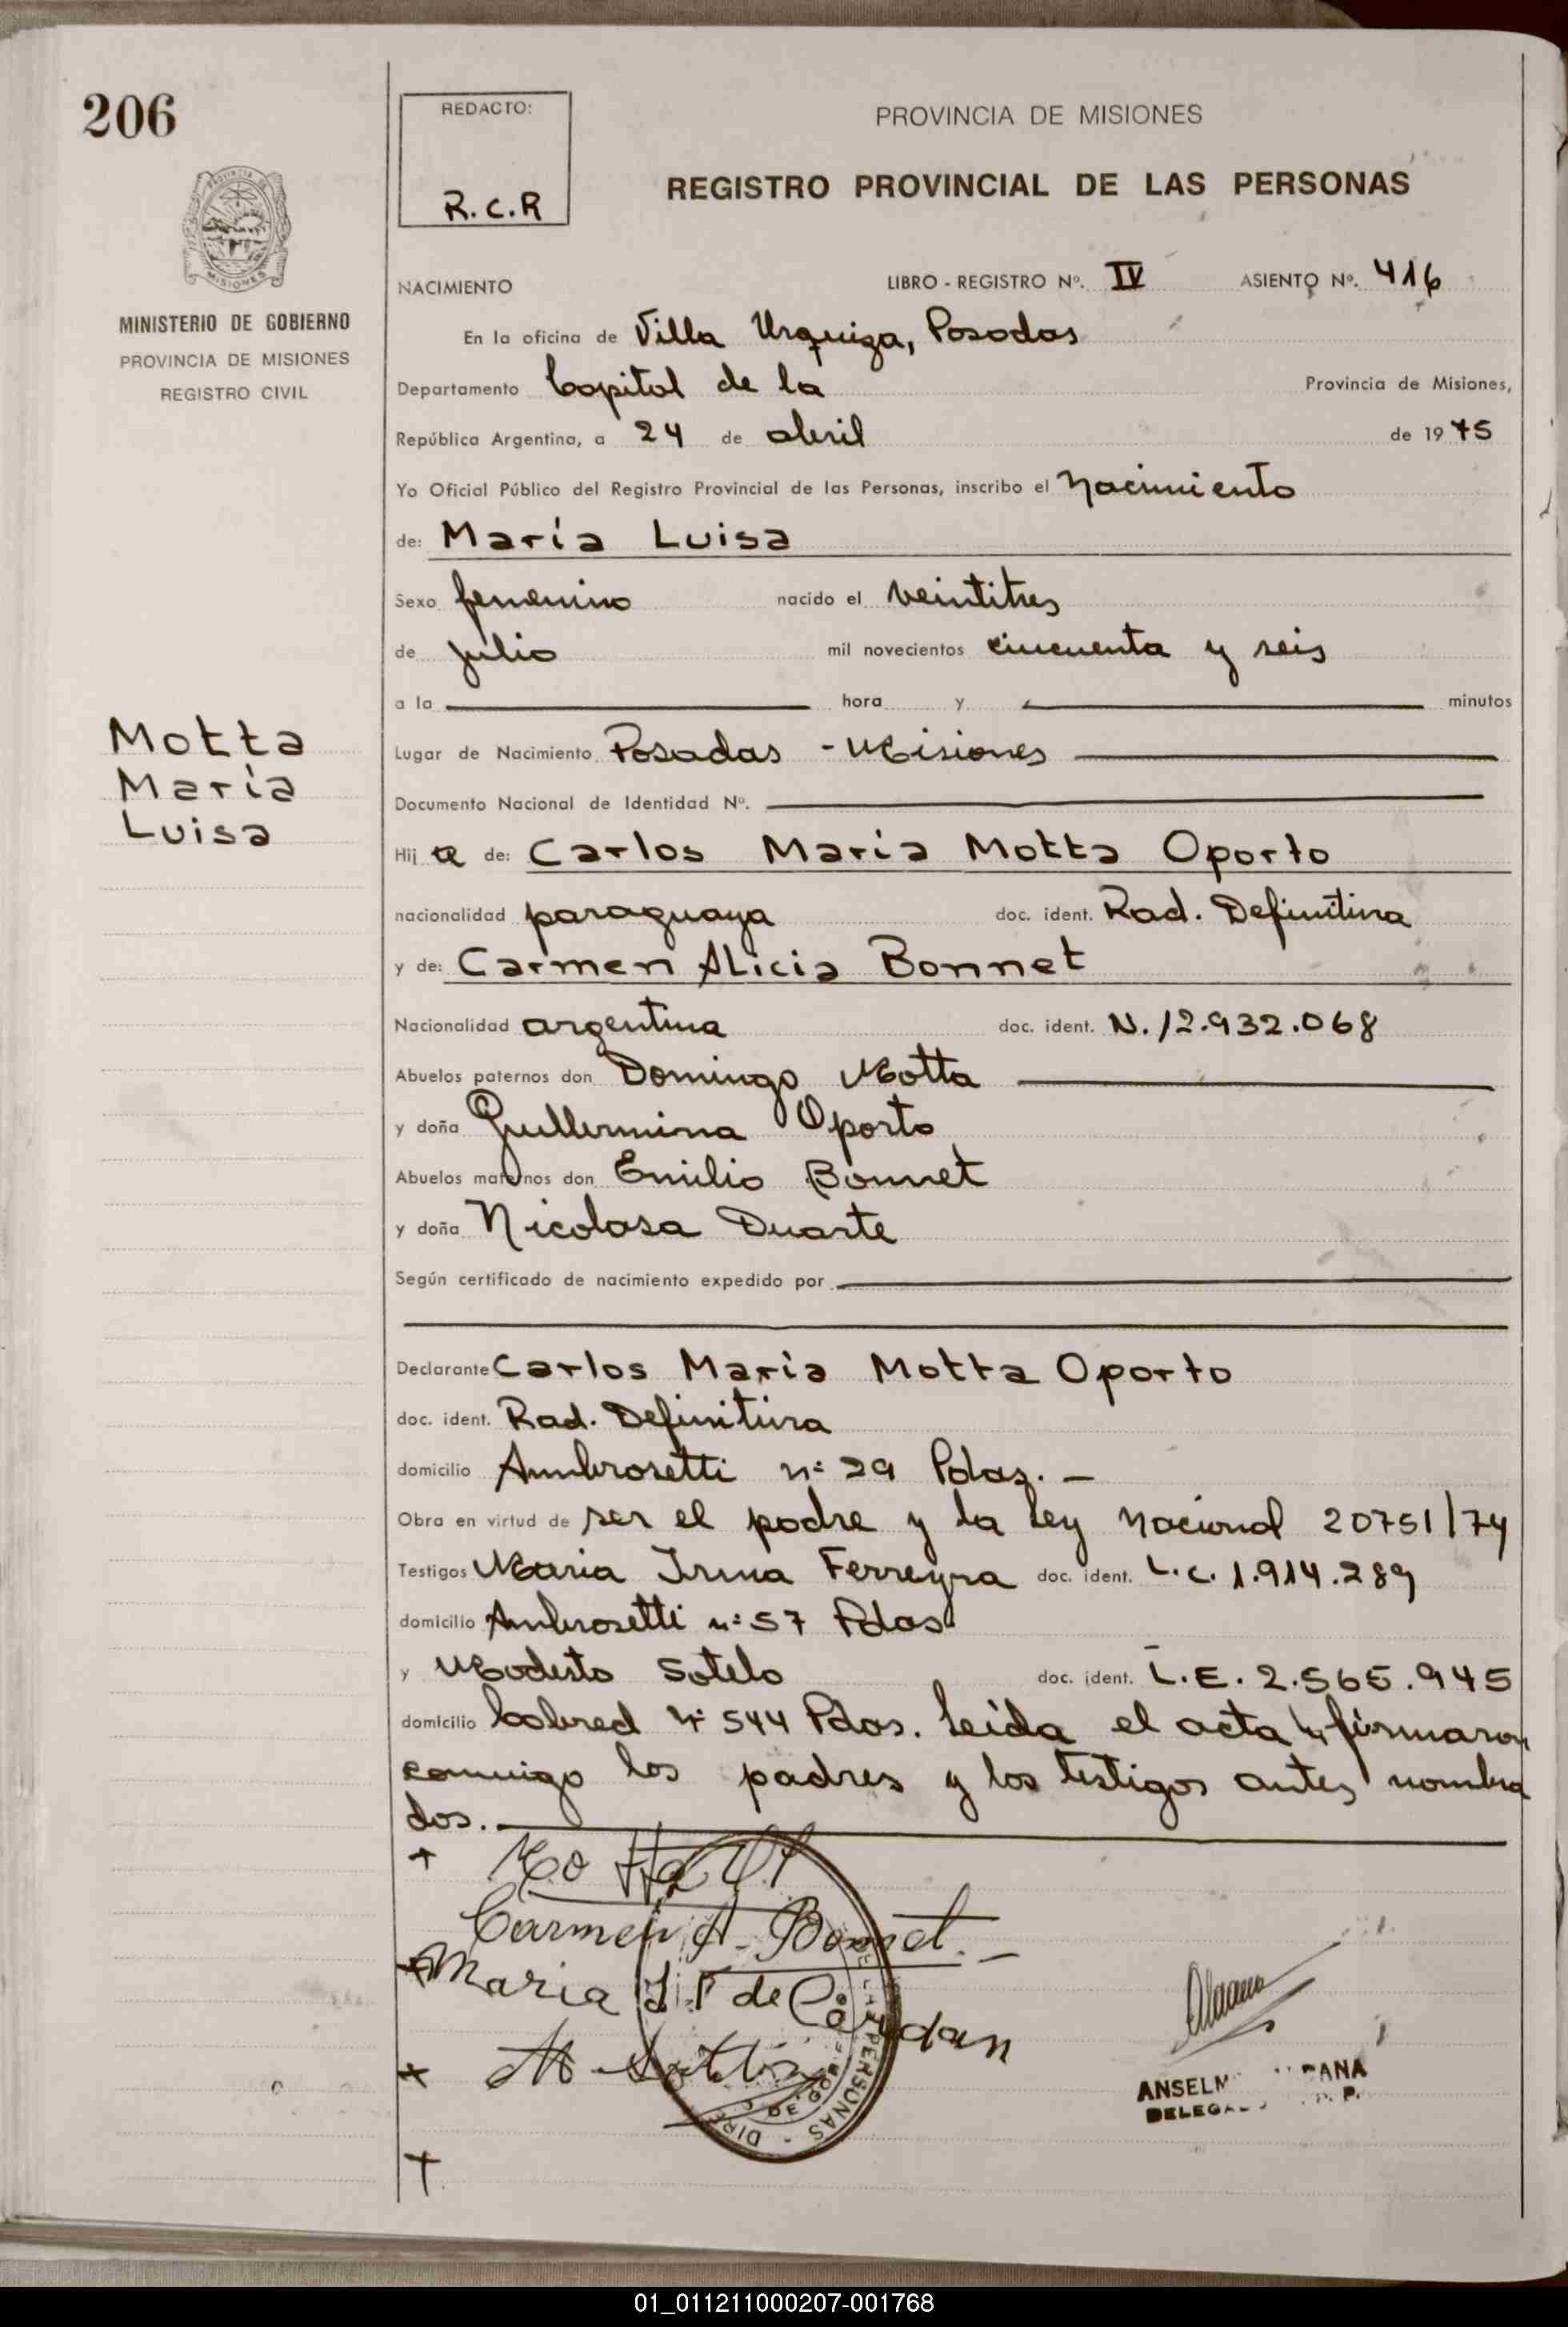 206
REDACTO:
R.C.R
PROVINCIA DE MISIONES
REGISTRO PROVINCIAL DE LAS PERSONAS
PROVINCIA DE
MISIONES
MINISTERIO DE GOBIERNO
PROVINCIA DE MISIONES
REGISTRO CIVIL
NACIMIENTO LIBRO - REGISTRO Nº. IV ASIENTO Nº. 416
En la oficina de Villa Urquiza, Posadas
Departamento Capital de la Provincia de Misiones,
República Argentina, a 24 de abril de 1975
Yo Oficial Público del Registro Provincial de las Personas, inscribo el Nacimiento
de: María Luisa
Sexo femenino nacido el veintitres
de julio mil novecientos cincuenta y seis
a la hora y minutos
Motta
María
Luisa
Lugar de Nacimiento Posadas - Misiones
Documento Nacional de Identidad Nº.
Hija de: Carlos María Motta Oporto
nacionalidad paraguaya doc. ident. Rad. Definitiva
y de: Carmen Alicia Bonnet
Nacionalidad argentina doc. ident. N. 12.932.068
Abuelos paternos don Domingo Motta
y doña Guillermina Oporto
Abuelos maternos don Emilio Bonnet
y doña Nicolasa Duarte
Según certificado de nacimiento expedido por
Declarante Carlos María Motta Oporto
doc. ident. Rad. Definitiva
domicilio Ambrosetti nº 29 Pdas. -
Obra en virtud de ser el padre y la Ley Nacional 20751/74
Testigos Maria Irma Ferreyra doc. ident. L.C. 1.914.289
domicilio Ambrosetti nº 57 Pdas
y Modesto Sotelo doc. ident. L.E. 2.565.945
domicilio Cabred Nº 544 Pdas. Leída el acta la firmaron
conmigo los padres y los testigos antes nombra
dos.
Carmen A. Bonnet. -
Maria I. F de
M
PERSONAS - DIRE DE GO
ANSELM PANA
DELEGA P.
01_011211000207-001768